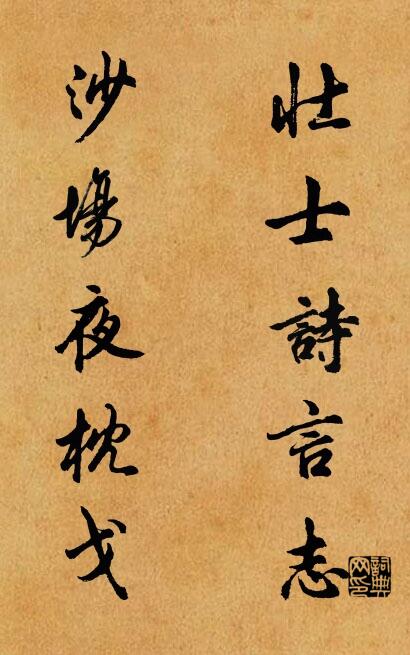 壮士詩言志
沙場夜枕戈
詞典网印